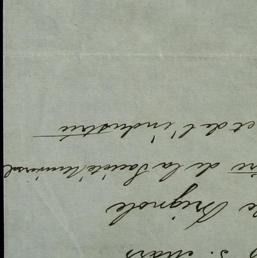 5. mars
Brignole
de la Société Universel
et de l'industrie